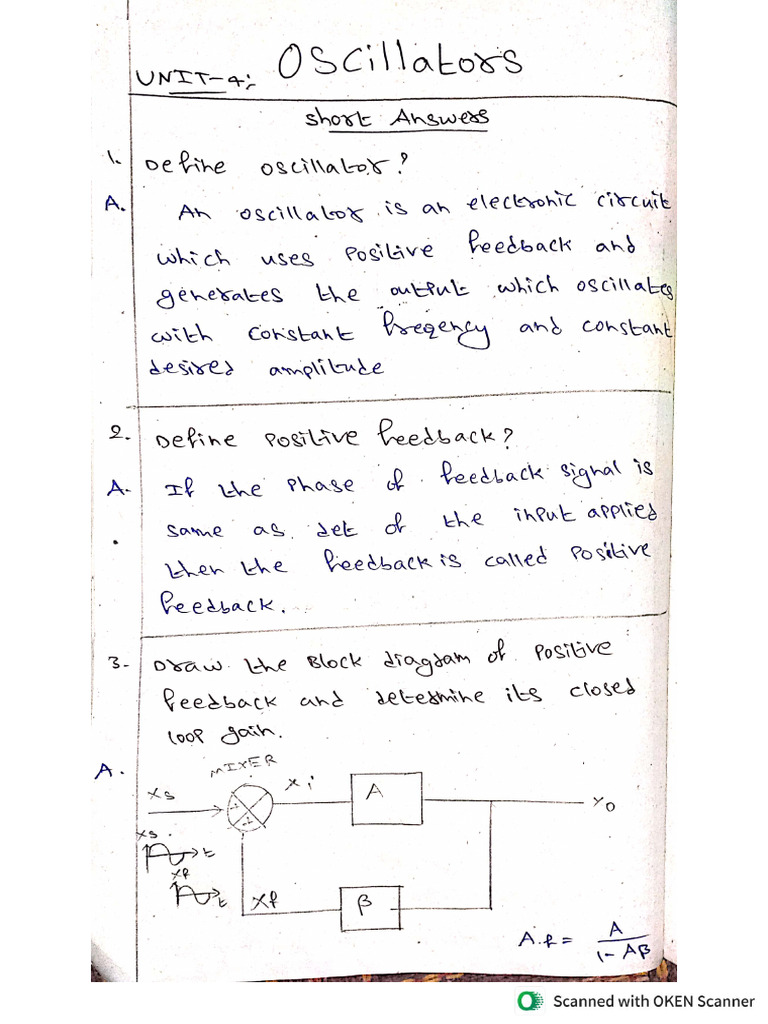 UNIT-4: Oscillators
Short Answers
1. Define oscillator?
A. An oscillator is an electronic circuit
which uses Positive feedback and
generates the output which oscillates
with constant freqency and constant
desired amplitude
2. Define Positive feedback?
A. If the Phase of feedback signal is
same as det of the input applied
then the feedback is called Positive
feedback.
3. Draw the Block diagram of Positive
feedback and determine its closed
loop gain.
A.
MIXER
Xs Xi A Yo
Xs
t
Xf
t
Xf β
A.f = A / 1-Aβ
Scanned with OKEN Scanner